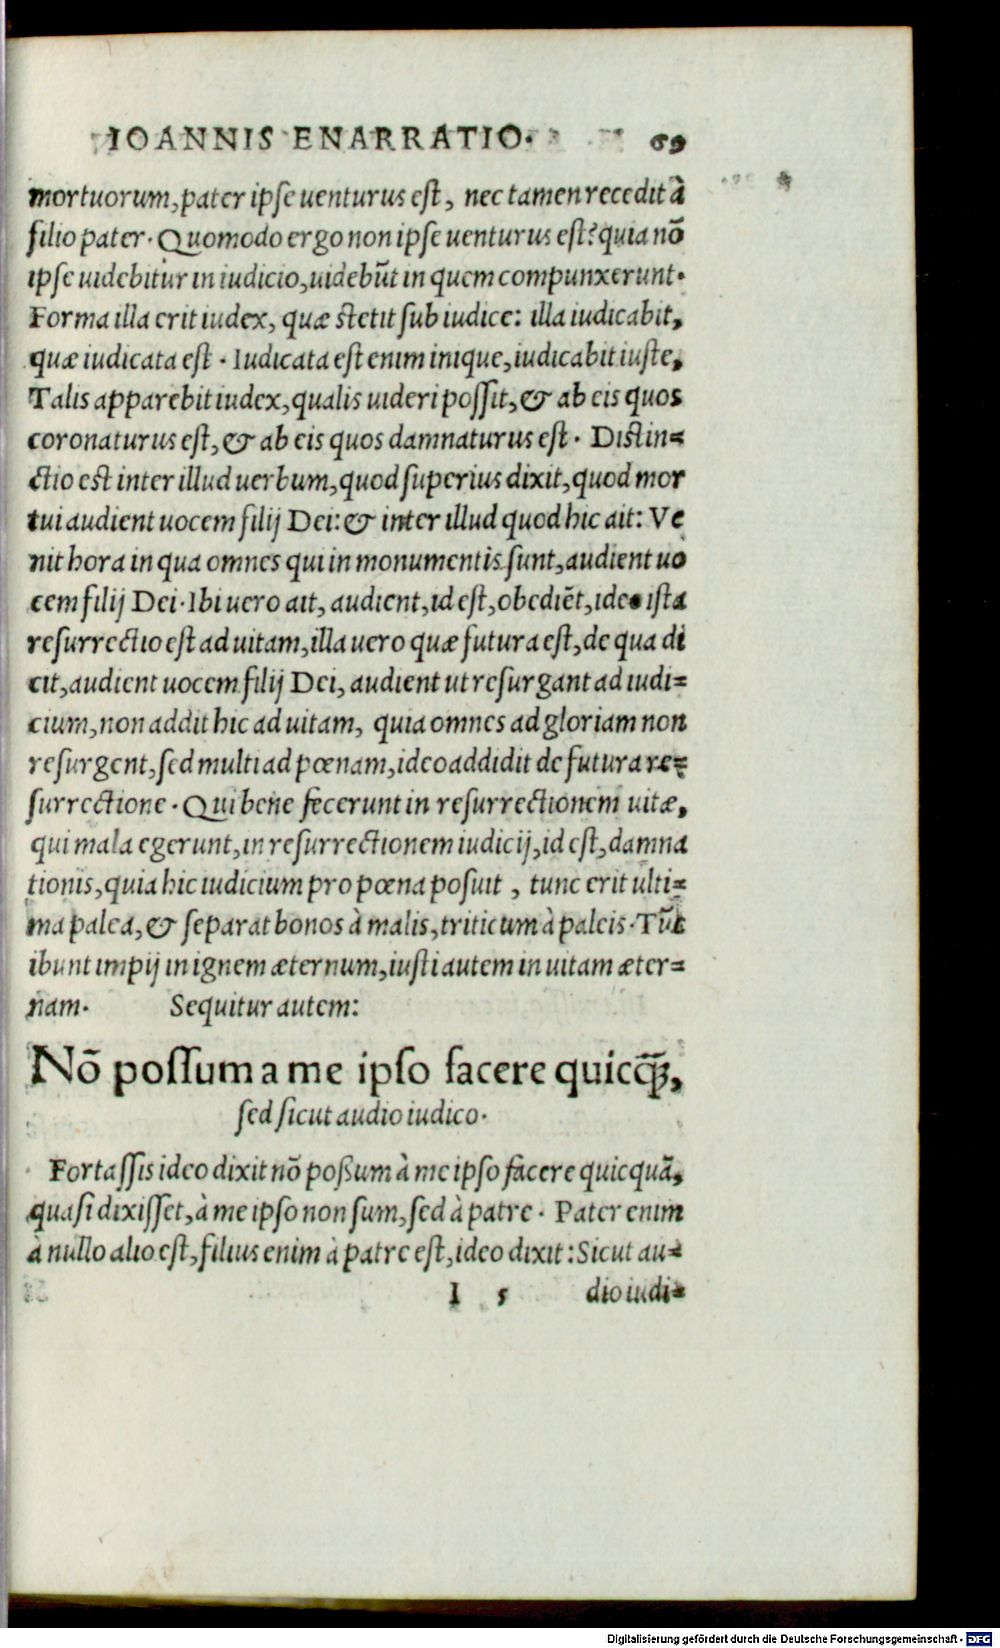 IOANNIS ENARRATIO. 69
mortuorum, pater ipse uenturus est, nec tamen recedit à
filio pater. Quomodo ergo non ipse uenturus est? quia nõ
ipse uidebitur in iudicio, uidebũt in quem compunxerunt.
Forma illa erit iudex, quæ stetit sub iudice: illa iudicabit,
quæ iudicata est. Iudicata est enim inique, iudicabit iuste,
Talis apparebit iudex, qualis uideri possit, & ab eis quos
coronaturus est, & ab eis quos damnaturus est. Distin=
ctio est inter illud uerbum, quod superius dixit, quod mor
tui audient uocem filij Dei: & inter illud quod hic ait: Ve
nit hora in qua omnes qui in monumentis sunt, audient uo
cem filij Dei. Ibi uero ait, audient, id est, obediẽt, ideo ista
resurrectio est ad uitam, illa uero quæ futura est, de qua di
cit, audient uocem filij Dei, audient ut resurgant ad iudi=
cium, non addit hic ad uitam, quia omnes ad gloriam non
resurgent, sed multi ad pœnam, ideo addidit de futura re=
surrectione. Qui bene fecerunt in resurrectionem uitæ,
qui mala egerunt, in resurrectionem iudicij, id est, damna
tionis, quia hic iudicium pro pœna posuit, tunc erit ulti=
ma palea, & separat bonos à malis, triticum à paleis. Tũc
ibunt impij in ignem æternum, iusti autem in uitam æter=
nam. Sequitur autem:
Nõ possum a me ipso facere quicq̃3,
sed sicut audio iudico.
Fortassis ideo dixit nõ possum à me ipso facere quicquã,
quasi dixisset, à me ipso non sum, sed à patre. Pater enim
à nullo alio est, filius enim à patre est, ideo dixit: Sicut au=
I 5 dio iudi=
Digitalisierung gefördert durch die Deutsche Forschungsgemeinschaft - DFG